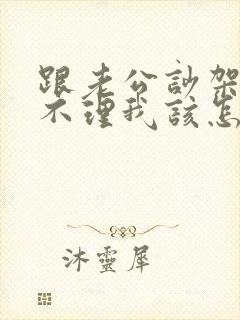 跟老公訃架
不理我該怎
沐靈犀